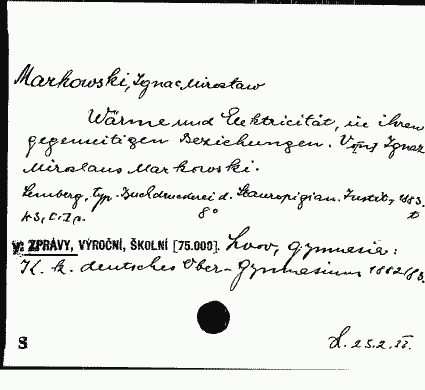 Markowski, Ignac Mirosław
Wärme und Elektricität, in ihren
gegenseitigen Beziehungen. Ignaz
Miroslaus Markowski.
Lemberg, typ. Buchdruckerei d. Stauropigian. Instit., 1883.
8°
v: ZPRÁVY, VÝROČNÍ, ŠKOLNÍ [75.000]. Lvov, gymnasia:
K. k. deutsches Ober-Gymnasium 1882/83.
S